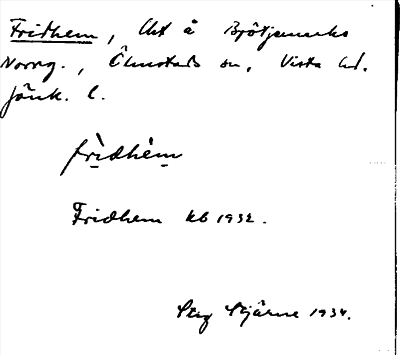 Fridhem, lht å Bjötjemarks
Norrg., Ölmstads sn, Vista hd.
Jönk. l.
frìdhèm
Fridhem kb 1932.
Stig Stjärne 1934.